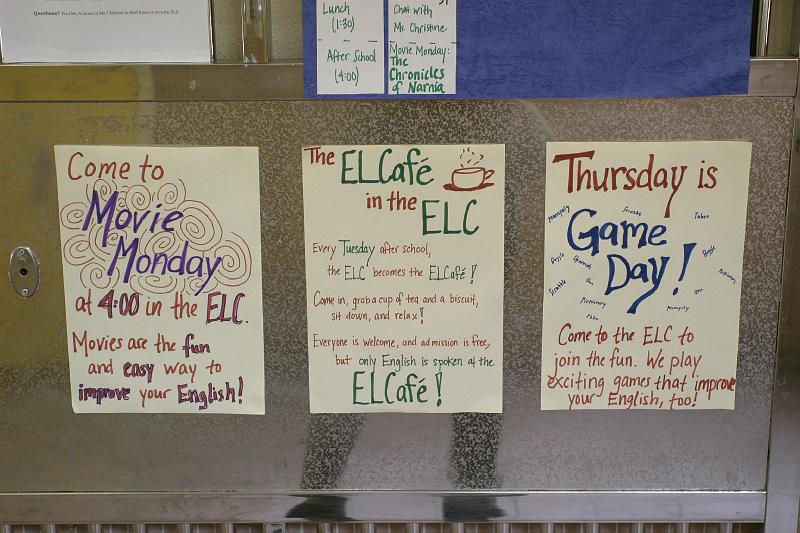 Questions?
Lunch
(1:30)
After School
(4:00)
Chat with
Ms. Christine
Movie Monday:
The
Chronicles
of Narnia
Come to
Movie
Monday
at 4:00 in the ELC.
Movies are the fun
and easy way to
improve your English!
The ELCafé
in the
ELC
Every Tuesday after school,
the ELC becomes the ELCafé!
Come in, grab a cup of tea and a biscuit,
sit down, and relax!
Everyone is welcome, and admission is free,
but only English is spoken at the
ELCafé!
Thursday is
Game
Day!
Scrabble
Taboo
Boggle
Pictionary
Uno
monopoly
Come to the ELC to
join the fun. We play
exciting games that improve
your English, too!